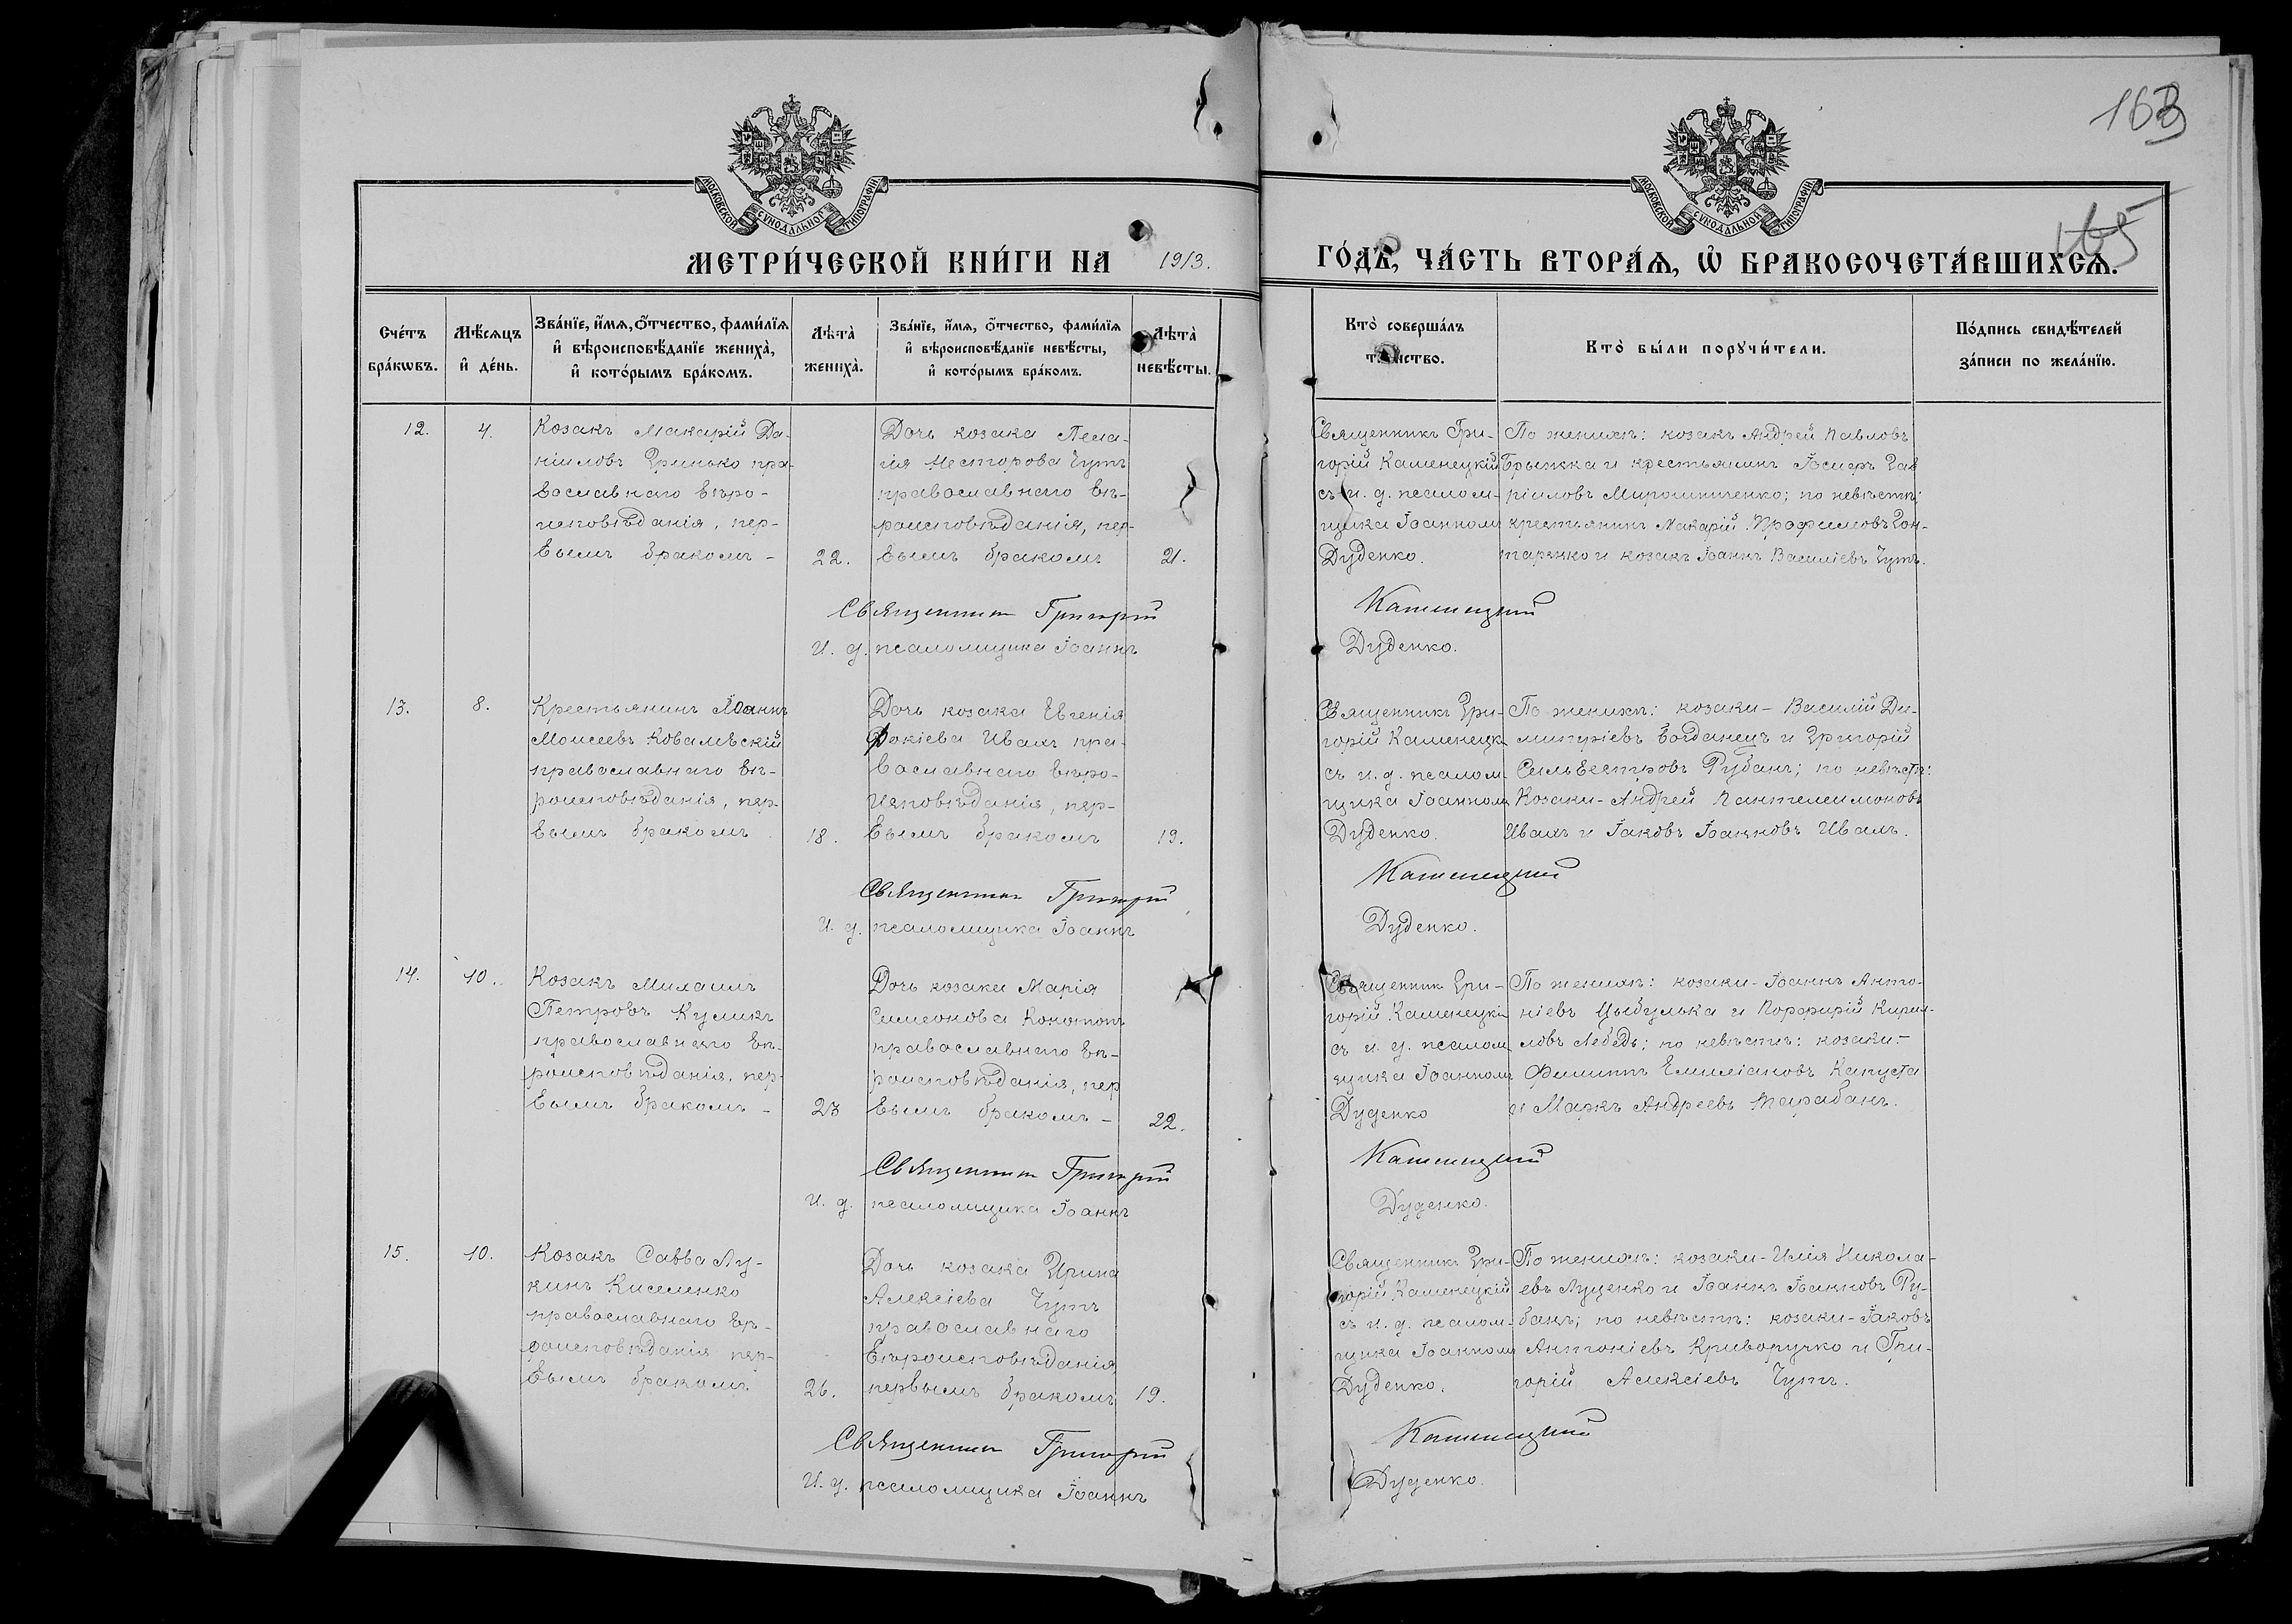 163
165
МОСКОВСКОЙ СѴНОДАЛЬНОЙ ТИПОГРАФІИ
МОСКОВСКОЙ СѴНОДАЛЬНОЙ ТИПОГРАФІИ
МЕТРИ́ЧЕСКОЙ КНИ́ГИ НА 1913. ГО́ДЪ, ЧА́СТЬ ВТОРА́Я, Ѡ БРАКОСОЧЕТА́ВШИХСЯ.
Сче́тъ
бра́кѡвъ.
Мѣ́сяцъ
и де́нь.
Зва́нїе, и́мя, ѻ́тчество, фами́лїя
и вѣроисповѣ́данїе жениха̀,
и кото́рымъ бра́комъ.
Лѣта̀
жениха̀.
Зва́нїе, и́мя, ѻ́тчество, фами́лїя
и вѣроисповѣ́данїе невѣ́сты,
и кото́рымъ бра́комъ.
Лѣта̀
невѣ́сты.
Кто̀ соверша́лъ
таинство.
Кто̀ бы́ли порꙋчи́тели.
По́дпись свидѣ́телей
за́писи по жела́нїю.
12.
4.
Козакъ Макарій Да-
ніиловъ Гринько пра-
вославнаго вѣро-
исповѣданія, пер-
вымъ бракомъ -
22.
Дочь козака Пела-
гія Несторова Чутъ
православнаго вѣ-
роисповѣданія, пер-
вымъ бракомъ
21.
Священникъ Гри-
горій Каменецкій
съ и. д. псалом-
щика Іоанномъ
Дуденко.
По женихѣ: козакъ Андрей Павловъ
Брыжка и крестьянинъ Іосифъ Гав
ріиловъ Мирошниченко; по невѣстѣ:
крестьянинъ Макарій Трофимовъ Гон-
таренко и козакъ Іоаннъ Василіевъ Чутъ.
Священникъ Григорій Каменецкій
И. д. псаломщика Іоаннъ Дуденко.
13.
8.
Крестьянинъ Іоаннъ
Моисеевъ Ковалевскій
православнаго вѣ-
роисповѣданія, пер-
вымъ бракомъ
18.
Дочь козака Евгенія
Фокіева Иваль пра-
вославнаго вѣро-
исповѣданія, пер-
вымъ бракомъ
19.
Священникъ Гри-
горій Каменецк
съ и. д. псалом-
щика Іоанномъ
Дуденко.
По женихѣ: козаки - Василій Ди-
митріевъ Богданецъ и Григорій
Сильвестровъ Рубанъ; по невѣстѣ:
Козаки - Андрей Пантелеимоновъ
Иваль и Іаковъ Іоанновъ Иваль.
Священникъ Григорій Каменецкій
И. д. псаломщика Іоаннъ Дуденко.
14.
10.
Козакъ Михаилъ
Петровъ Куликъ
православнаго вѣ-
роисповѣданія, пер-
вымъ бракомъ -
23
Дочь козака Марія
Симеонова Конотопъ
православнаго вѣ-
роисповѣданія, пер
вымъ бракомъ -
22.
Священникъ Гри-
горій Каменецкій
съ и. д. псалом
щика Іоанномъ
Дуденко
По женихѣ: козаки - Іоаннъ Анто-
ніевъ Цыбулька и Порфирій Кирил-
ловъ Лебедь; по невѣстѣ: козаки:-
Филиппъ Емиліановъ Капуста
и Маркъ Андреевъ Тарабанъ.
Священникъ Григорій Каменецкій
И. д. псаломщика Іоаннъ Дуденко.
15.
10.
Козакъ Савва Лу-
кинъ Киселенко
православнаго вѣ-
роисповѣданія пер-
вымъ бракомъ
26.
Дочь козака Ирина
Алексіева Чутъ
православнаго
вѣроисповѣданія,
первымъ бракомъ
19.
Священникъ Гри-
горій Каменецкій
съ и. д. псалом-
щика Іоанномъ
Дуденко.
По женихѣ: козаки - Илія Никола-
евъ Луценко и Іоаннъ Іоанновъ Ру-
банъ; по невѣстѣ: козаки - Іаковъ
Антоніевъ Криворучко и Гри-
горій Алексіевъ Чутъ.
Священникъ Григорій Каменецкій
И. д. псаломщика Іоаннъ Дуденко.